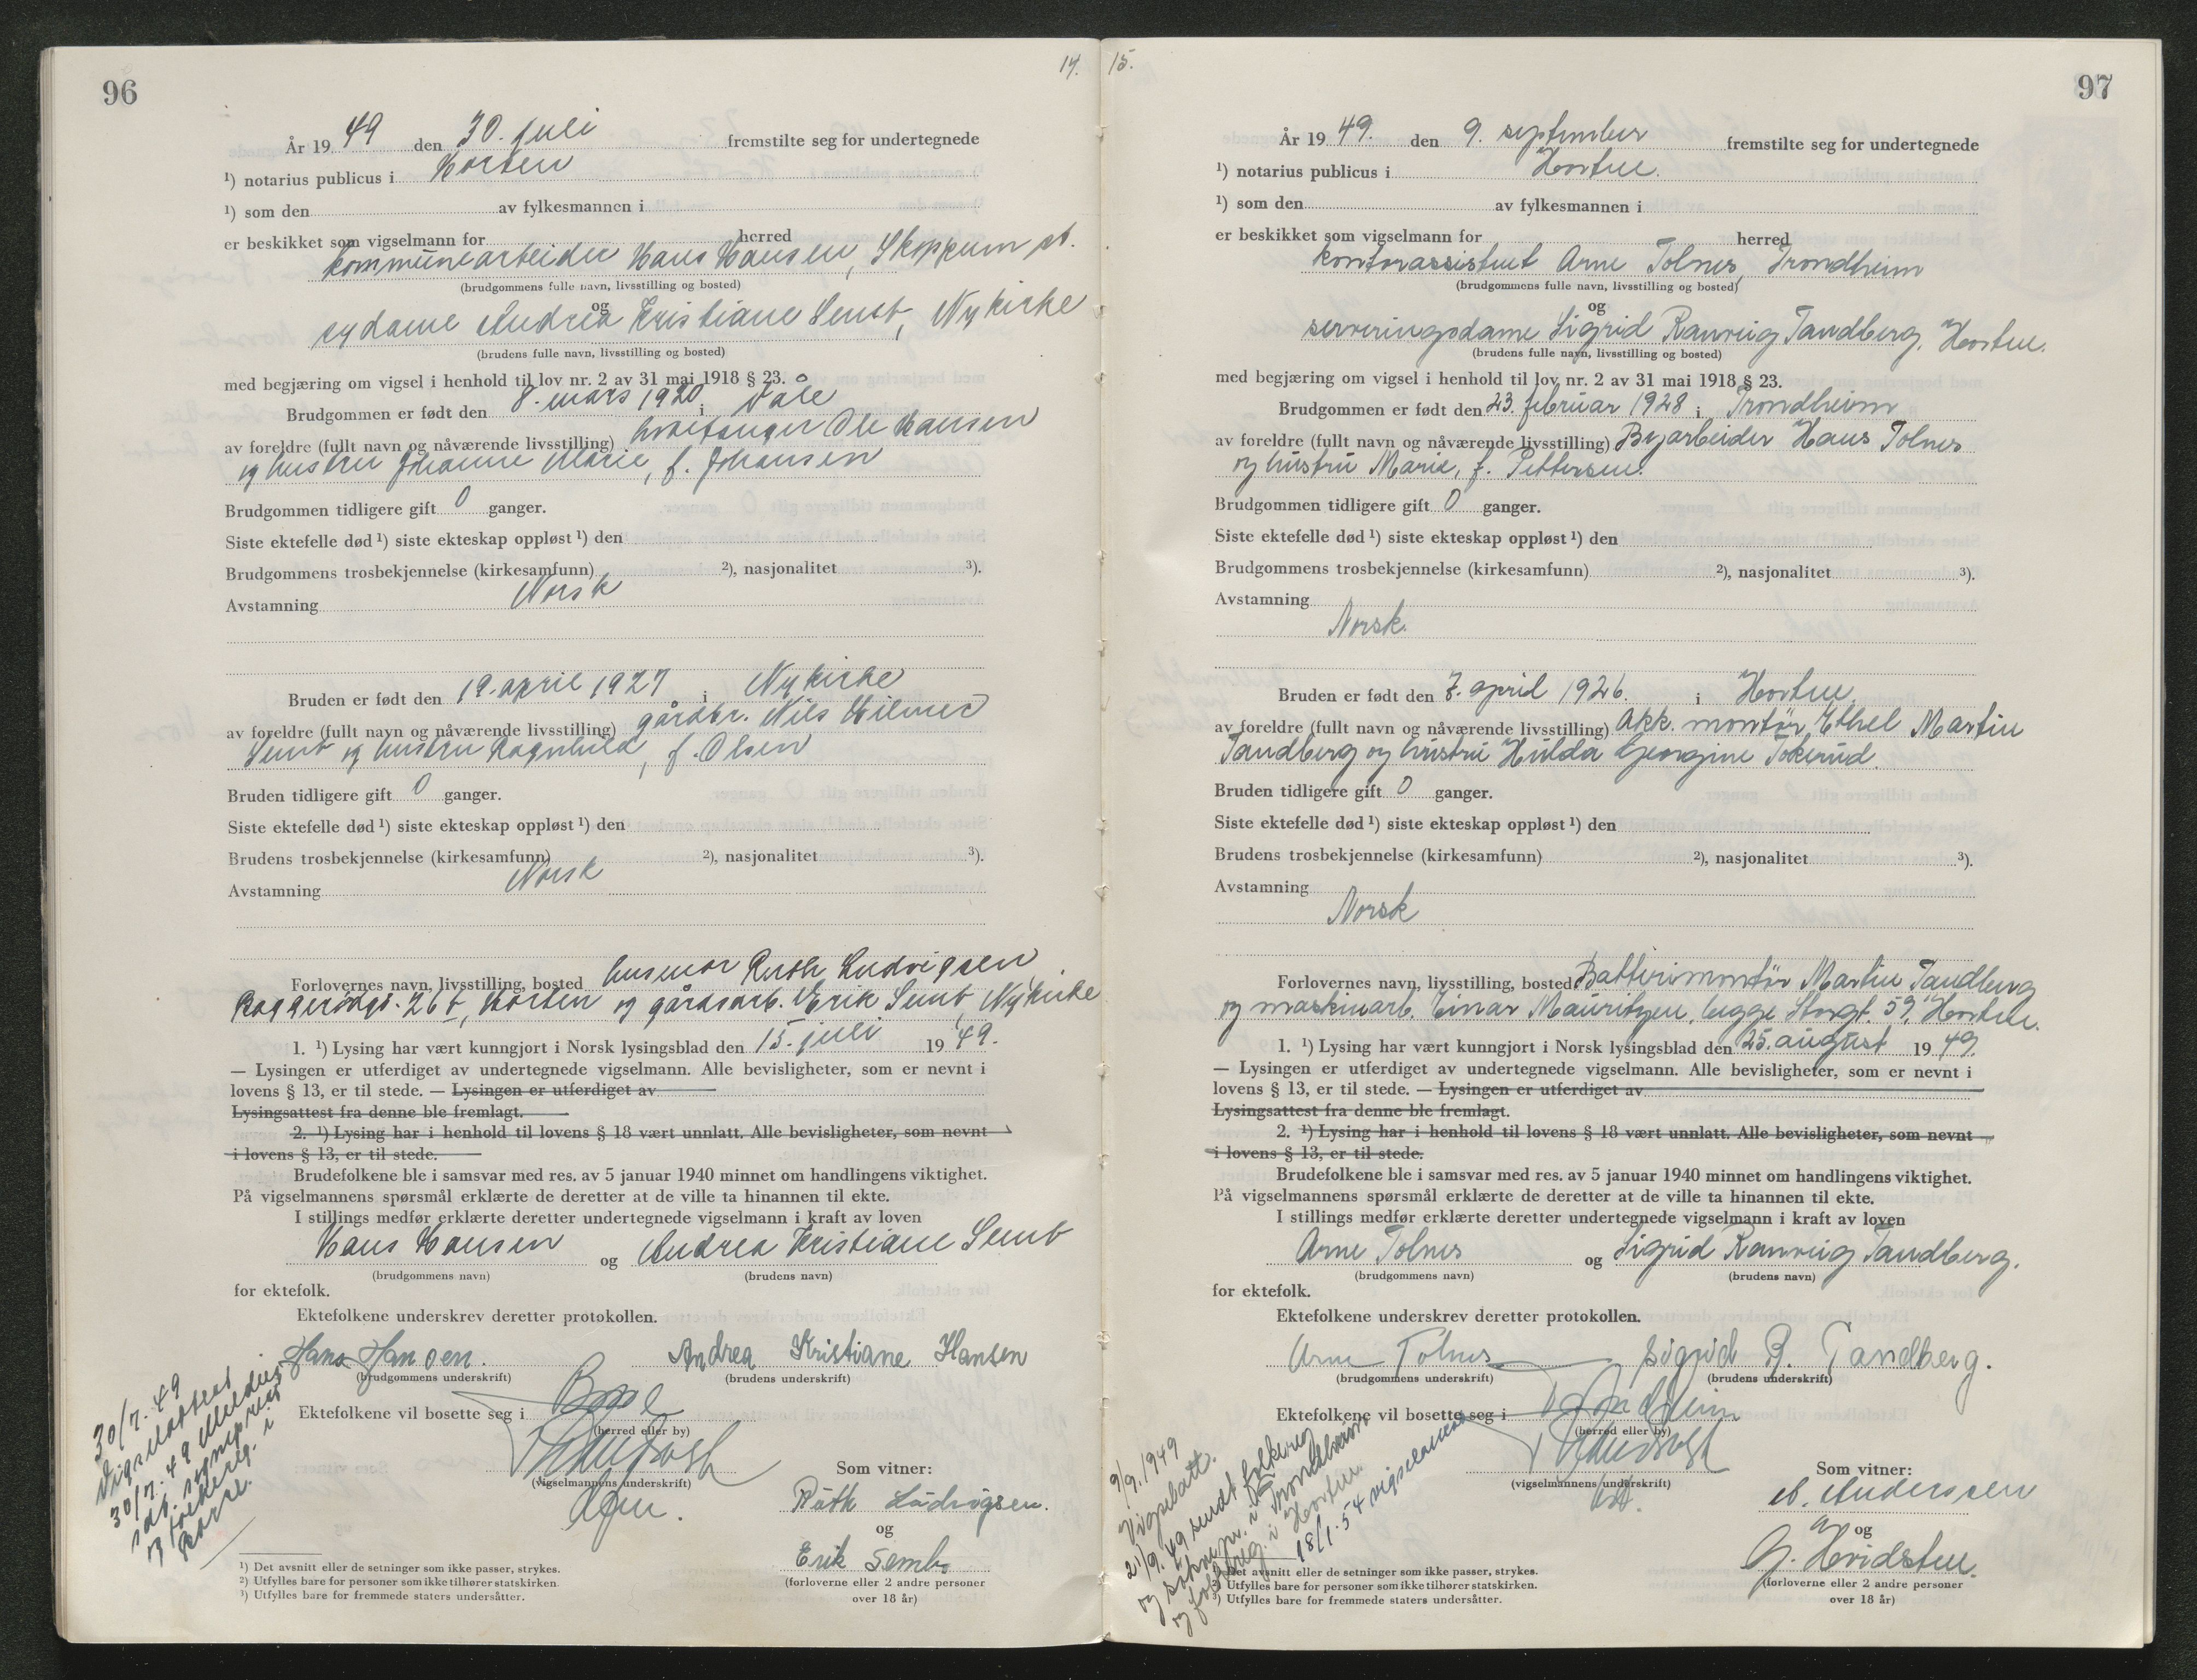 96
14.
År 1949 den 30. juli fremstilte seg for undertegnede
¹) notarius publicus i Horten
¹) som den av fylkesmannen i
er beskikket som vigselmann for herred
kommunearbeider Hans Hansen, Skoppum st.
(brudgommens fulle navn, livsstilling og bosted)
og
sydame Andrea Kristiane Semb, Nykirke
(brudens fulle navn, livsstilling og bosted)
med begjæring om vigsel i henhold til lov nr. 2 av 31 mai 1918 § 23.
Brudgommen er født den 8. mars 1920 i Våle
av foreldre (fullt navn og nåværende livsstilling) Ole Hansen
og hustru Johanne Marie, f. Johansen
Brudgommen tidligere gift 0 ganger.
Siste ektefelle død ¹) siste ekteskap oppløst ¹) den
Brudgommens trosbekjennelse (kirkesamfunn) ²), nasjonalitet ³).
Avstamning Norsk
Bruden er født den 19. april 1927 i Nykirke
av foreldre (fullt navn og nåværende livsstilling) gårdbr. Nils Hilmer
Semb og hustru Ragnhild, f. Olsen
Bruden tidligere gift 0 ganger.
Siste ektefelle død ¹) siste ekteskap oppløst ¹) den
Brudens trosbekjennelse (kirkesamfunn) ²), nasjonalitet ³).
Avstamning Norsk
Forlovernes navn, livsstilling, bosted husmor Ruth Ludvigsen
26 b, Horten og gårdsarb. Erik Semb, Nykirke
1. ¹) Lysing har vært kunngjort i Norsk lysingsblad den 15. juli 1949.
— Lysingen er utferdiget av undertegnede vigselmann. Alle bevisligheter, som er nevnt i
lovens § 13, er til stede. — Lysingen er utferdiget av
Lysingsattest fra denne ble fremlagt.
2. ¹) Lysing har i henhold til lovens § 18 vært unnlatt. Alle bevisligheter, som nevnt
i lovens § 13, er til stede.
Brudefolkene ble i samsvar med res. av 5 januar 1940 minnet om handlingens viktighet.
På vigselmannens spørsmål erklærte de deretter at de ville ta hinannen til ekte.
I stillings medfør erklærte deretter undertegnede vigselmann i kraft av loven
Hans Hansen og Andrea Kristiane Semb
(brudgommens navn) (brudens navn)
for ektefolk.
Ektefolkene underskrev deretter protokollen.
Hans Hansen. Andrea Kristiane Hansen
(brudgommens underskrift) (brudens underskrift)
Ektefolkene vil bosette seg i Borre
(herred eller by)
(vigselmannens underskrift)
Som vitner:
Ruth Ludvigsen.
og
Erik Semb
(forloverne eller 2 andre personer
over 18 år)
30/7. 49
Vigselattest
30/7. 49 Meldinger
sdt. sogneprest
og folkereg. i
Borre.
¹) Det avsnitt eller de setninger som ikke passer, strykes.
²) Utfylles bare for personer som ikke tilhører statskirken.
³) Utfylles bare for fremmede staters undersåtter.
15.
97
År 1949. den 9. september fremstilte seg for undertegnede
¹) notarius publicus i Horten.
¹) som den av fylkesmannen i
er beskikket som vigselmann for herred
kontorassistent Arne Tolnes, Trondheim
(brudgommens fulle navn, livsstilling og bosted)
og
serveringsdame Sigrid Ranveig Tandberg, Horten.
(brudens fulle navn, livsstilling og bosted)
med begjæring om vigsel i henhold til lov nr. 2 av 31 mai 1918 § 23.
Brudgommen er født den 23. februar 1928 i Trondheim
av foreldre (fullt navn og nåværende livsstilling) Byarbeider Hans Tolnes
og hustru Marie, f. Pettersen.
Brudgommen tidligere gift 0 ganger.
Siste ektefelle død ¹) siste ekteskap oppløst ¹) den
Brudgommens trosbekjennelse (kirkesamfunn) ²), nasjonalitet ³).
Avstamning
Norsk.
Bruden er født den 7. april 1926. i Horten,
av foreldre (fullt navn og nåværende livsstilling) Akk. montør Ethel Martin
Tandberg og hustru Hulda Georgine Tokerud.
Bruden tidligere gift 0 ganger.
Siste ektefelle død ¹) siste ekteskap oppløst ¹) den
Brudens trosbekjennelse (kirkesamfunn) ²), nasjonalitet ³).
Avstamning
Norsk
Forlovernes navn, livsstilling, bosted Batterimontør Martin Tandberg
og maskinarb. Einar Mauritzen, begge Storgt. 59, Horten.
1. ¹) Lysing har vært kunngjort i Norsk lysingsblad den 25. august 1949.
— Lysingen er utferdiget av undertegnede vigselmann. Alle bevisligheter, som er nevnt i
lovens § 13, er til stede. — Lysingen er utferdiget av
Lysingsattest fra denne ble fremlagt.
2. ¹) Lysing har i henhold til lovens § 18 vært unnlatt. Alle bevisligheter, som nevnt
i lovens § 13, er til stede.
Brudefolkene ble i samsvar med res. av 5 januar 1940 minnet om handlingens viktighet.
På vigselmannens spørsmål erklærte de deretter at de ville ta hinannen til ekte.
I stillings medfør erklærte deretter undertegnede vigselmann i kraft av loven
Arne Tolnes og Sigrid Ranveig Tandberg.
(brudgommens navn) (brudens navn)
for ektefolk.
Ektefolkene underskrev deretter protokollen.
Arne Tolnes Sigrid R. Tandberg.
(brudgommens underskrift) (brudens underskrift)
Ektefolkene vil bosette seg i Trondheim
(herred eller by)
(vigselmannens underskrift)
Som vitner:
M. Anderssen
og
G. Hvidsten.
(forloverne eller 2 andre personer
over 18 år)
9/9. 1949
Vigselatt.
21/9. 49 sendt folkereg
og soknepr. i Trondheim
og folkereg. i Horten.
18/1. 54 vigselattest
¹) Det avsnitt eller de setninger som ikke passer, strykes.
²) Utfylles bare for personer som ikke tilhører statskirken.
³) Utfylles bare for fremmede staters undersåtter.